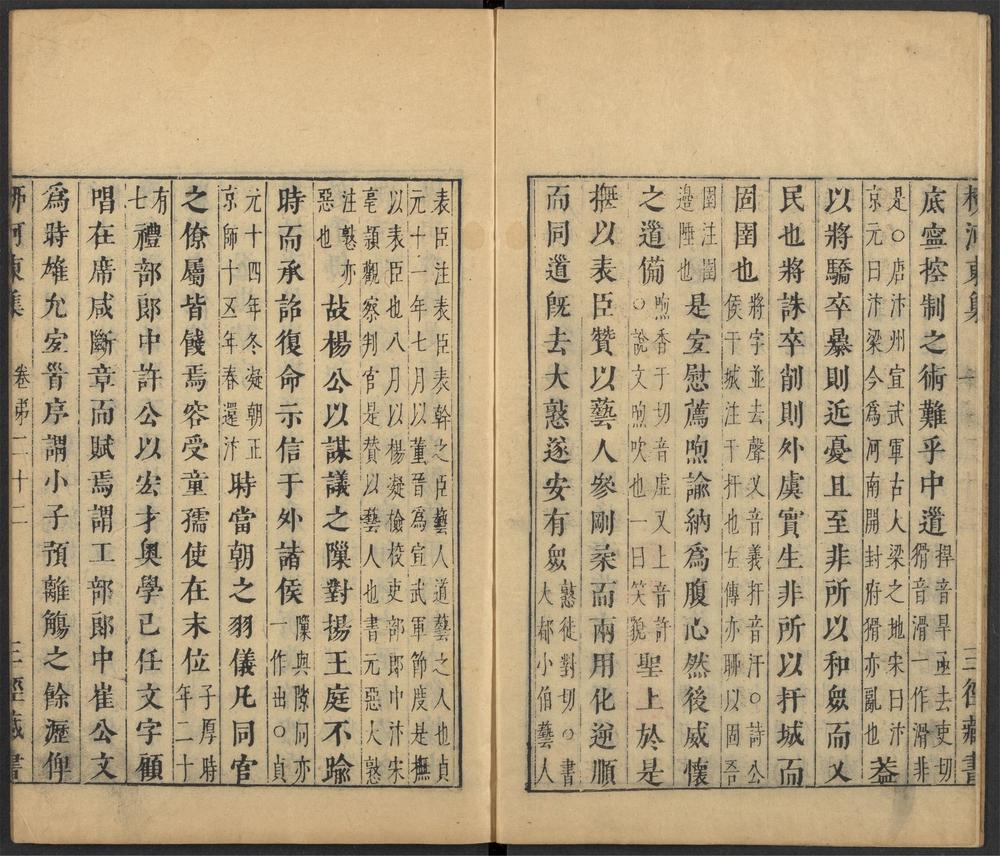 柳河東集 三徑藏書
底寧控制之術難乎中道捍音旱亟去吏切
猾音滑一作滑非
是○唐汴州宣武軍古大梁之地宋曰汴
京元曰汴梁今爲河南開封府猾亦亂也
葢
以將驕卒暴則近憂且至非所以和衆而乂
民也將誅卒削則外虞實生非所以扞城而
固圉也將字並去聲乂音義扞音汗○詩公
侯干城注干扞也左傳亦聊以固吾
圉注圉
邊陲也
是宜慰薦喣諭納爲腹心然後威懷
之道備喣香于切音虛又上音許
○說文喣吹也一曰笑貌
聖上於是
撫以表臣贊以藝人參剛柔而兩用化逆順
而同道既去大憝遂安有衆憝徒對切○書
大都小伯藝人
表臣注表臣表幹之臣藝人道藝之人也貞
元十一年七月以董晉爲宣武軍節度是撫
以表臣也八月以楊凝檢校吏部郎中汴宋
亳潁觀察判官是贊以藝人也書元惡大憝
注憝亦
惡也
故楊公以謀議之隟對揚王庭不踰
時而承詔復命示信于外諸侯隟與隙同亦
一作出○貞
元十四年冬凝朝正
京師十五年春還汴
時當朝之羽儀凡同官
之僚屬皆餞焉容受童孺使在末位子厚時
年二十
有
七
禮部郎中許公以宏才奧學已任文字顧
唱在席咸斷章而賦焉謂工部郎中崔公文
爲時雄允宜首序謂小子預離觴之餘瀝俾
柳河東集 卷第二十二 三徑藏書